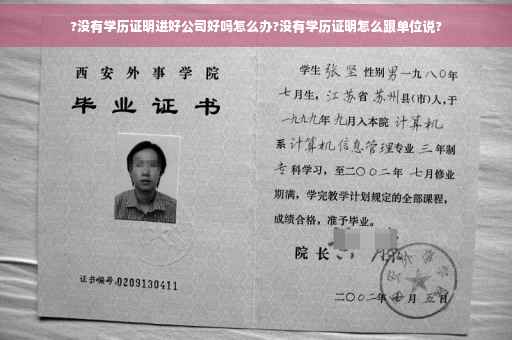 ?没有学历证明进好公司好吗怎么办?没有学历证明怎么跟单位说?
西安外事学院
毕业证书
证书编号:0209130411
学生 张坚 性别 男 一九八〇年
七月生，江苏省 苏州 县(市)人，于
一九九九年 九月入本院 计算机
系 计算机信息管理 专业 三 年制
专 科学习，至二〇〇二年 七月修业
期满，学完教学计划规定的全部课程，
成绩合格，准予毕业。
院 长
二〇〇二年 月 五 日